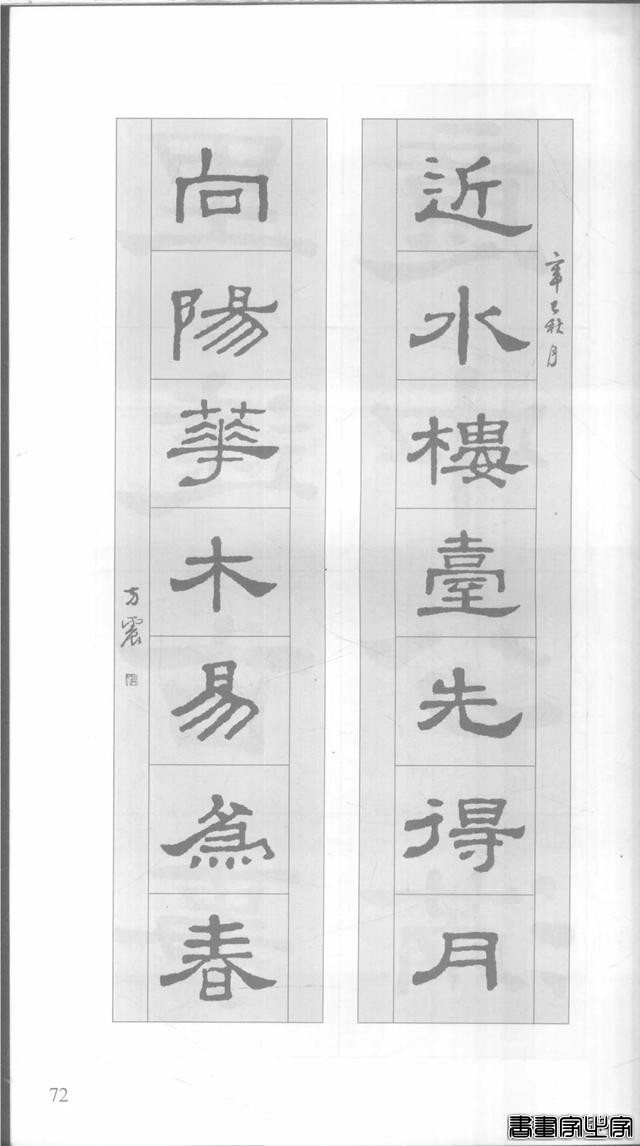 近水樓臺先得月
辛巳秋月
向陽華木易為春
方震
72
書畫家必字